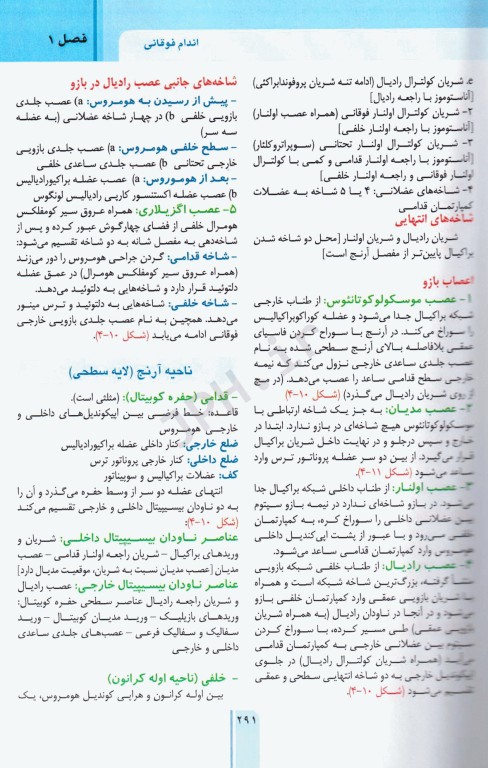 فصل ۱
اندام فوقانی
c. شریان کولترال رادیال (ادامه تنه شریان پروفوندابراکئی)
[آناستوموز با راجعه رادیال]
۲- شریان کولترال اولنار فوقانی (همراه عصب اولنار)
[آناستوموز با راجعه اولنار خلفی]
۳- شریان کولترال اولنار تحتانی (سوپراتروکلئار)
[آناستوموز با راجعه اولنار قدامی و کمی با کولترال
اولنار فوقانی و راجعه اولنار خلفی]
۴- شاخه‌های عضلانی: ۴ یا ۵ شاخه به عضلات
کمپارتمان قدامی
شاخه‌های انتهایی
شریان رادیال و شریان اولنار [محل دو شاخه شدن
براکیال پایین‌تر از مفصل آرنج است]
اعصاب بازو
۱- عصب موسکولوکوتانئوس: از طناب خارجی
شبکه براکیال جدا می‌شود و عضله کوراکوبراکیالیس
را سوراخ می‌کند. در آرنج با سوراخ کردن فاسیای
عمقی بلافاصله بالای آرنج سطحی شده به نام
عصب جلدی ساعدی خارجی نزول می‌کند که نیمه
خارجی سطح قدامی ساعد را عصب می‌دهد. (در مچ
از روی شریان رادیال می‌گذرد) (شکل ۱۰-۴)
۲- عصب مدیان: به جز یک شاخه ارتباطی با
موسکولوکوتانئوس هیچ شاخه‌ای در بازو ندارد. ابتدا در
خارج و سپس درجلو و در نهایت داخل شریان براکیال
قرار می‌گیرد. از بین دو سر عضله پروناتور ترس وارد
ساعد می‌شود (شکل ۱۱-۴).
۳- عصب اولنار: از طناب داخلی شبکه براکیال جدا
می‌شود. در بازو شاخه‌ای ندارد. در نیمه بازو سپتوم
بین عضلانی داخلی را سوراخ کره، به کمپارتمان
خلفی می‌رود و با عبور از پشت اپی‌کندیل داخلی
هومروس وارد کمپارتمان قدامی ساعد می‌شود.
۴- عصب رادیال: از طناب خلفی شبکه بازویی
منشأ گرفته، بزرگ‌ترین شاخه شبکه است و همراه
با شریان بازویی عمقی وارد کمپارتمان خلفی بازو
می‌شود و در آنجا در ناودان رادیال (به همراه شریان
بازویی عمقی) طی مسیر کرده، با سوراخ کردن
سپتوم بین عضلانی خارجی به کمپارتمان قدامی
می‌آید (همراه شریان کولترال رادیال) در جلوی
اپیکوندیل خارجی به دو شاخه انتهایی سطحی و عمقی
تقسیم می‌شود (شکل ۱۰-۴).
شاخه‌های جانبی عصب رادیال در بازو
- پیش از رسیدن به هومروس: a) عصب جلدی
بازویی خلفی b) در چهار شاخه عضلانی (به عضله
سه سر)
- سطح خلفی هومروس: a) عصب جلدی بازویی
خارجی تحتانی b) عصب جلدی ساعدی خلفی
- بعد از هوموروس: a) عصب عضله براکیورادیالیس
b) عصب عضله اکستنسور کارپی رادیالیس لونگوس
۵- عصب اگزیلاری: همراه عروق سیر کومفلکس
هومرال خلفی از فضای چهارگوش عبور کرده و پس از
شاخه‌دهی به مفصل شانه به دو شاخه تقسیم می‌شود:
- شاخه قدامی: گردن جراحی هومروس را دور می‌زند
(همراه عروق سیر کومفلکس هومرال) در عمق عضله
دلتوئید قرار دارد و شاخه‌هایی به دلتوئید می‌دهد.
- شاخه خلفی: شاخه‌هایی به دلتوئید و ترس مینور
می‌دهد. همچنین به نام عصب جلدی بازویی خارجی
فوقانی ادامه می‌یابد (شکل ۱۰-۴).
ناحیه آرنج (لایه سطحی)
- قدامی (حفره کوبیتال): (مثلثی است).
قاعده: خط فرضی بین اپیکوندیل‌های داخلی و
خارجی هومروس
ضلع خارجی: کنار داخلی عضله براکیورادیالیس
ضلع داخلی: کنار خارجی پروناتور ترس
کف: عضلات براکیالیس و سوپیناتور
انتهای عضله دو سر از وسط حفره می‌گذرد و آن را
به دو ناودان بیسیپیتال داخلی و خارجی تقسیم می‌کند
(شکل ۱۰-۴):
عناصر ناودان بیسیپیتال داخلی: شریان و
وریدهای براکیال – شریان راجعه اولنار قدامی – عصب
مدیان [عصب مدیان نسبت به شریان، موقعیت مدیال دارد]
عناصر ناودان بیسیپیتال خارجی: عصب رادیال
و شریان راجعه رادیال عناصر سطحی حفره کوبیتال:
وریدهای بازیلیک – ورید مدیان کوبیتال – ورید
سفالیک و سفالیک فرعی – عصب‌های جلدی ساعدی
داخلی و خارجی
- خلفی (ناحیه اوله کرانون)
بین اوله کرانون و هراپی کوندیل هومروس، یک
۲۹۱